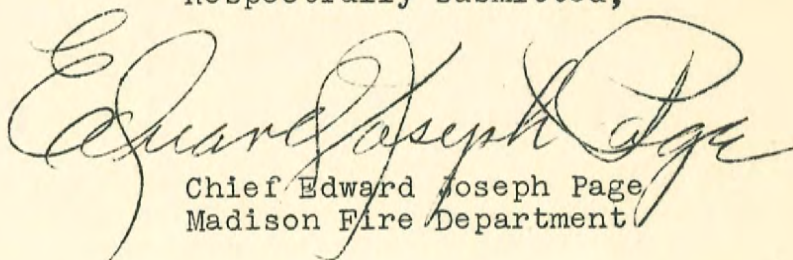 Respectfully submitted,
Edward Joseph Page
Chief Edward Joseph Page
Madison Fire Department